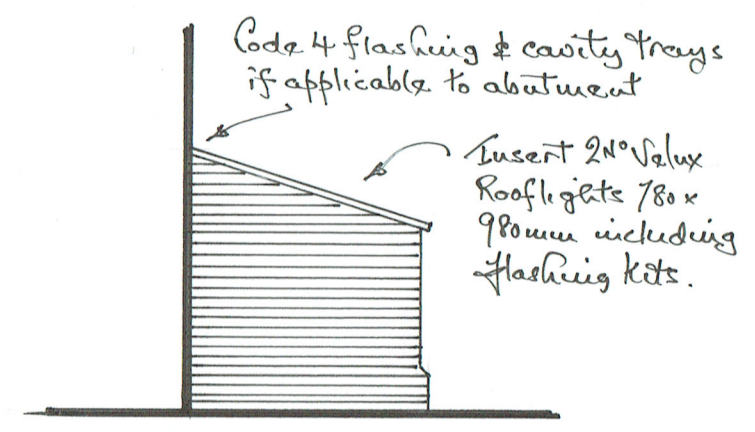 Code 4 flashing & cavity trays
if applicable to abutment
Insert 2N° Velux
Rooflights 780 x
980mm including
flashing kits.